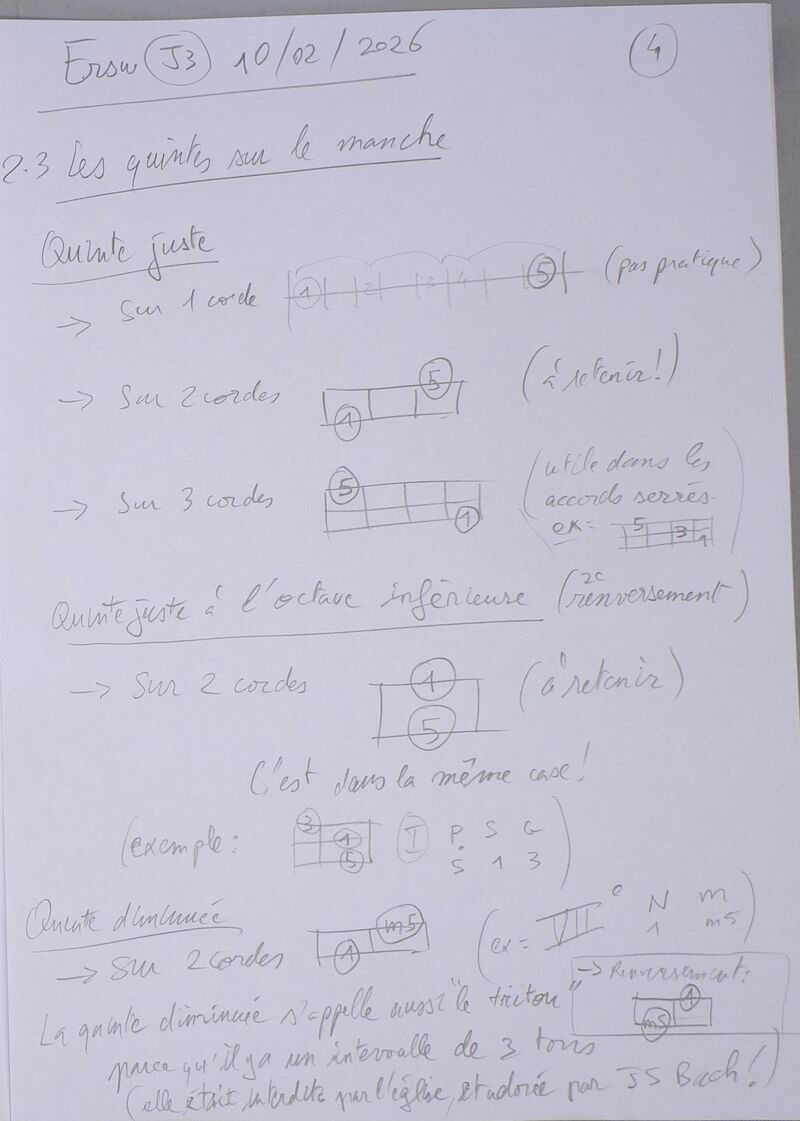 Ersu J3 10/02/2026 4
2.3 Les quintes sur le manche
Quinte juste
→ Sur 1 corde 1 2 3 4 5 (pas pratique)
→ Sur 2 cordes 1 5 (à retenir!)
→ Sur 3 cordes 5 1 (utile dans les
accords serrés.
ex= 5 3 1)
Quinte juste à l'octave inférieure (2c renversement)
→ Sur 2 cordes 1 5 (à retenir)
C'est dans la même case!
(exemple: 3 1 5 I P S G
5 1 3)
Quinte diminuée
→ Sur 2 cordes 1 m5 (ex= VII e N m
1 m5)
→ Renversement:
1 m5
La quinte diminuée s'appelle aussi "le triton"
parce qu'il y a un intervalle de 3 tons
(elle était interdite par l'église, et adorée par JS Bach!)